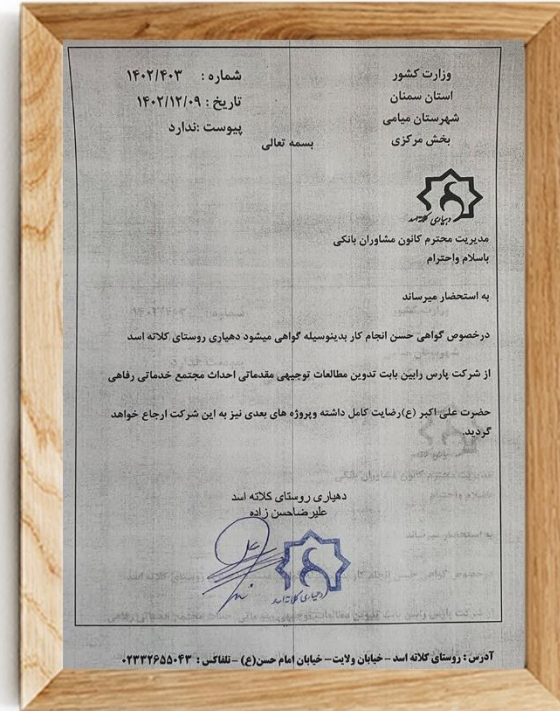 وزارت کشور
استان سمنان
شهرستان میامی
بخش مرکزی
شماره : ۱۴۰۲/۴۰۳
تاریخ : ۱۴۰۲/۱۲/۰۹
پیوست :ندارد
بسمه تعالی
دهیاری کلاته اسد
مدیریت محترم کانون مشاوران بانکی
باسلام واحترام
به استحضار میرساند
درخصوص گواهی حسن انجام کار بدینوسیله گواهی میشود دهیاری روستای کلاته اسد
از شرکت پارس رابین بابت تدوین مطالعات توجیهی مقدماتی احداث مجتمع خدماتی رفاهی
حضرت علی اکبر (ع)رضایت کامل داشته وپروژه های بعدی نیز به این شرکت ارجاع خواهد
گردید.
دهیاری روستای کلاته اسد
علیرضاحسن زاده
دهیاری کلاته اسد
آدرس : روستای کلاته اسد – خیابان ولایت– خیابان امام حسن(ع) –تلفاکس : ۰۲۳۳۲۶۵۵۰۴۳